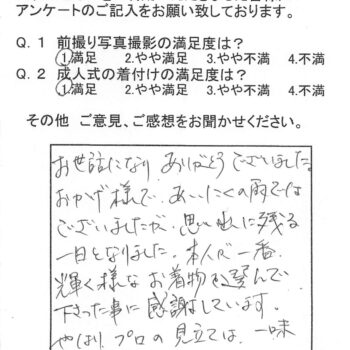 アンケートのご記入をお願い致しております。
Q.1 前撮り写真撮影の満足度は？
1.満足 2.やや満足 3.やや不満 4.不満
Q.2 成人式の着付けの満足度は？
1.満足 2.やや満足 3.やや不満 4.不満
その他 ご意見、ご感想をお聞かせください。
お世話になり ありがとうございました。
おかげ様で、あいにくの雨では
ございましたが、思い出に残る
一日となりました。本人が一番
輝く様なお着物を選んで
下さった事に感謝しています。
やはり プロの見立ては、一味